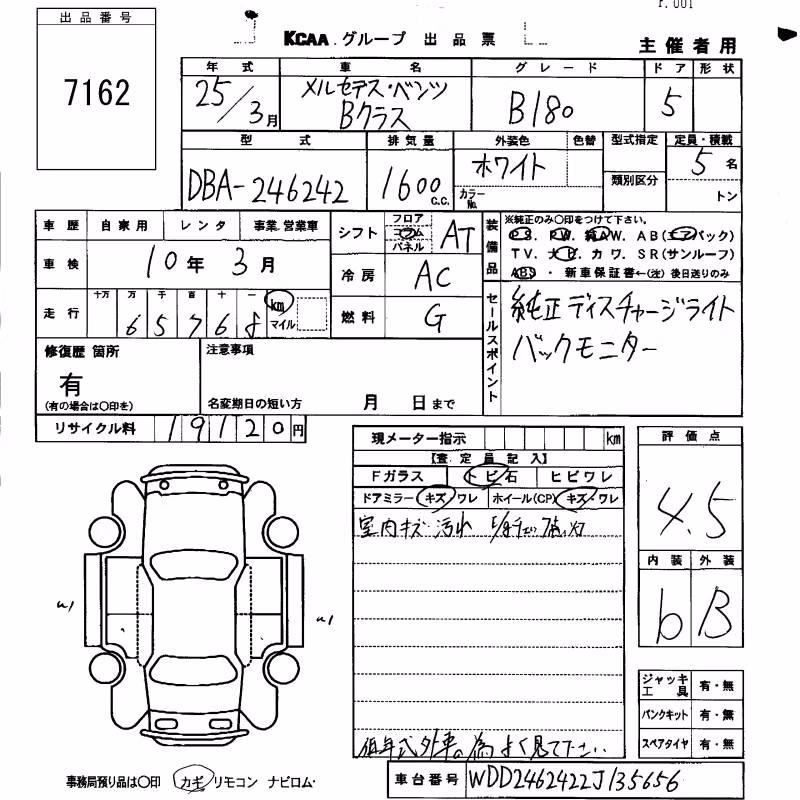 r.001
出品番号
7162
KCAA.グループ 出品票
主催者用
年式 車名 グレード ドア 形状
25/3月 メルセデス・ベンツ Bクラス B180 5
型式 排気量 外装色 色替 型式指定 定員・積載
DBA-246242 1600 C.C. ホワイト 5名
カラーNo. 類別区分 トン
車歴 自家用 レンタ 事業.営業車
シフト フロア コラム パネル AT
装備品
※純正のみ〇印をつけて下さい。
PS. PW. 純AW. AB(エアバック)
TV. ナビ カワ. SR(サンルーフ)
ABS ・ 新車保証書←(注)後日送りのみ
車検 10年3月
冷房 AC
走行 十万 万 千 百 十 一
65768 km マイル
燃料 G
セールスポイント
純正ディスチャージライト
バックモニター
修復歴 箇所
有
(有の場合は〇印を)
注意事項
名変期日の短い方 月 日まで
リサイクル料 19120円
現メーター指示 km
【査定員記入】
Fガラス トビ石 ヒビワレ
ドアミラー キズ ワレ ホイール(CP) キズ・ワレ
室内キズ 汚れ
低年式外車の為 よく見て下さい
評価点
4.5
内装 外装
b B
ジャッキ工具 有・無
パンクキット 有・無
スペアタイヤ 有・無
u1
u1
事務局預り品は〇印 カギ リモコン ナビロム・
車台番号 WDD2462422J135656